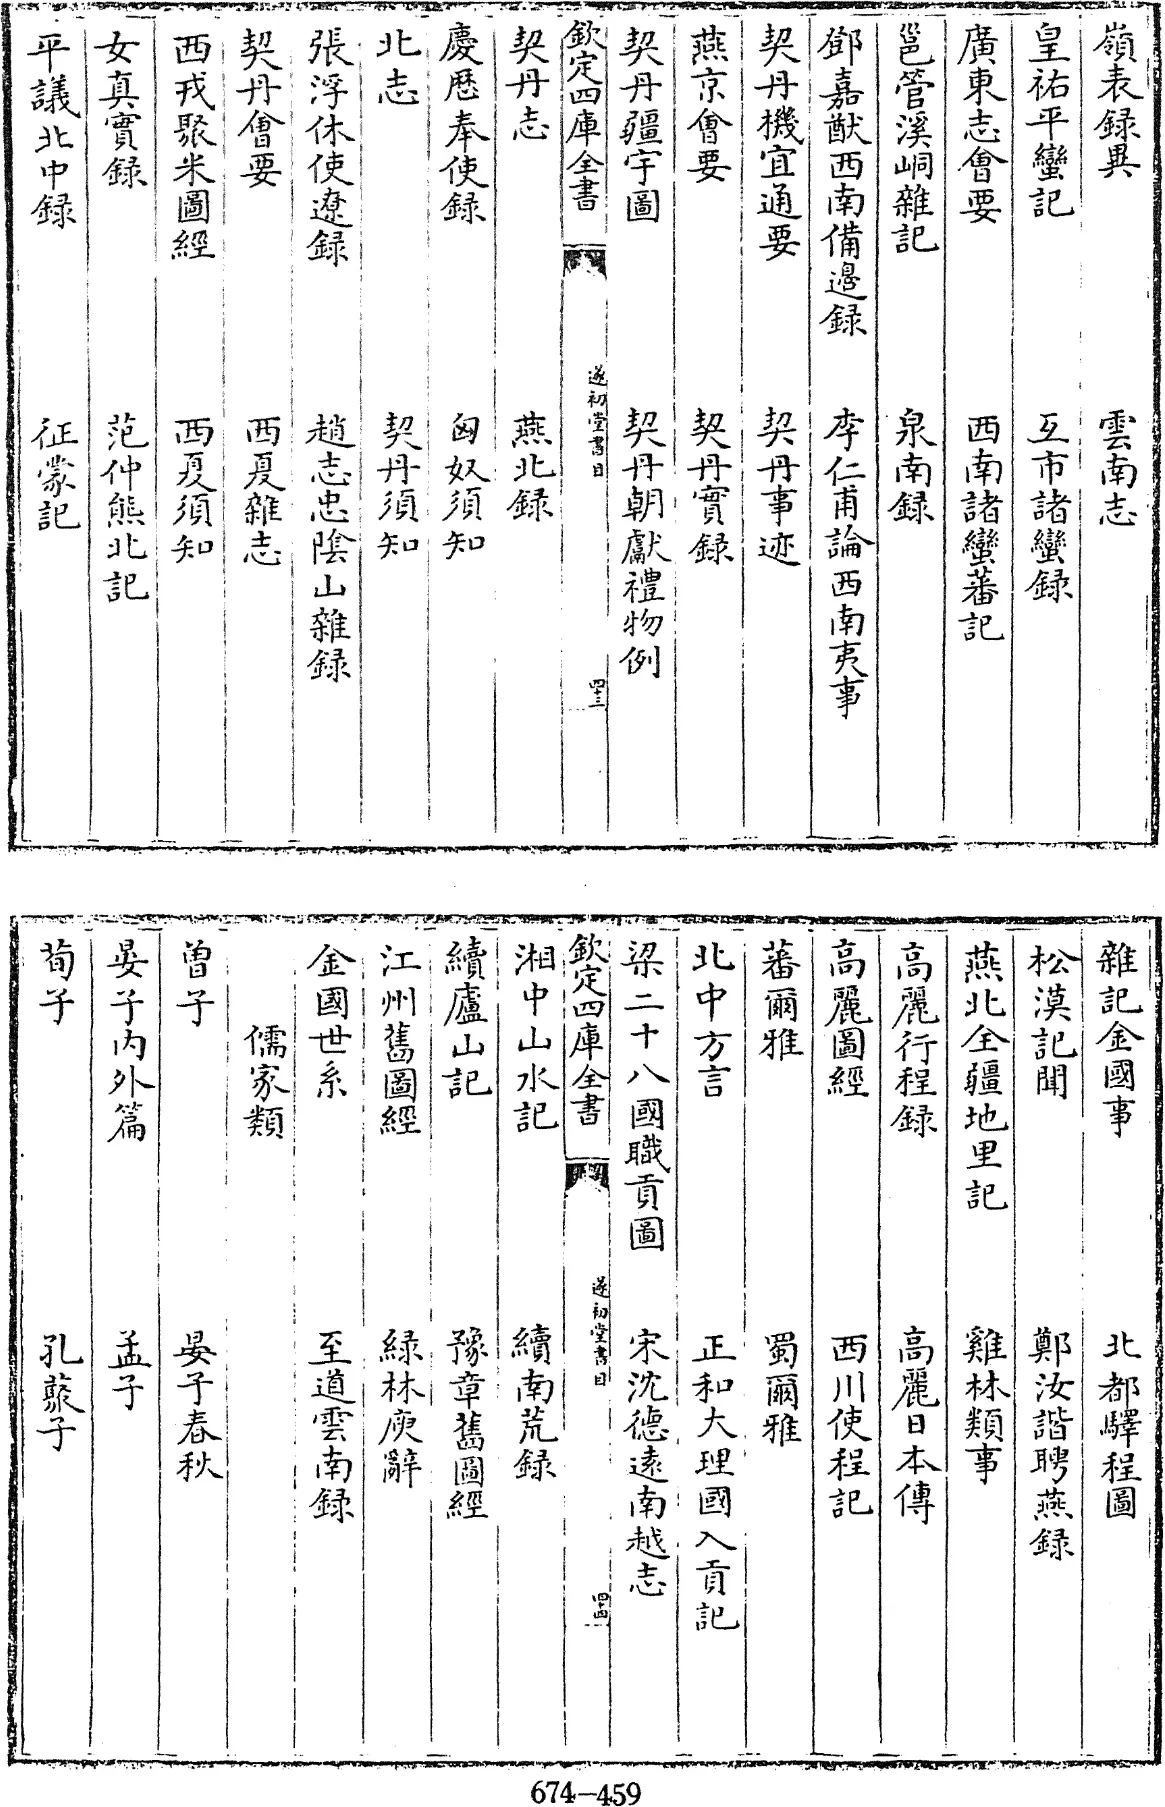 嶺表録異　雲南志
皇祐平蠻記　互市諸蠻録
廣東志會要　西南諸蠻蕃記
邕管溪峒雜記　泉南録
鄧嘉猷西南備邊録　李仁甫論西南夷事
契丹機宜通要　契丹事迹
燕京會要　契丹實録
契丹疆宇圖　契丹朝獻禮物例
欽定四庫全書　遂初堂書目　四十三
契丹志　燕北録
慶厯奉使録　匈奴須知
北志　契丹須知
張浮休使遼録　趙志忠隂山雜録
契丹會要　西夏雜志
西戎聚米圖經　西夏須知
女真實録　范仲熊北記
平議北中録　征蒙記
雜記金國事　北都驛程圖
松漠記聞　鄭汝諧聘燕録
燕北全疆地里記　雞林類事
高麗行程録　高麗日本傳
高麗圖經　西川使程記
蕃爾雅　蜀爾雅
北中方言　正和大理國入貢記
梁二十八國職貢圖　宋沈德遠南越志
欽定四庫全書　遂初堂書目　四十四
湘中山水記　續南荒録
續廬山記　豫章舊圖經
江州舊圖經　緑林庾辭
金國世系　至道雲南録
儒家類
曽子　晏子春秋
晏子内外篇　孟子
荀子　孔藂子
674-459